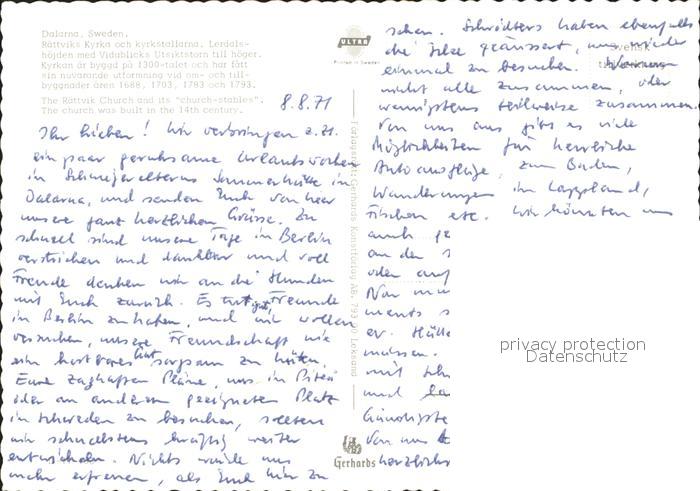 Dalarna, Sweden.
Rättviks Kyrka och kyrkstallarna. Lerdals-
höjden med Vidablicks Utsiktstorn till höger.
Kyrkan är byggd på 1300-talet och har fått
sin nuvarande utformning vid om- och till-
byggnader åren 1688, 1703, 1783 och 1793.
The Rättvik Church and its "church-stables".
The church was built in the 14th century.
8.8.71
Ihr Lieben! Wir verbringen z.Zt.
ein paar geruhsame Urlaubswochen
in Schwiegerelterns Sommerhütte in
Dalarna, und senden Euch von hier
unsere ganz herzlichen Grüsse. Zu
schnell sind unsere Tage in Berlin
verstrichen und dankbar und voll
Freude denken wir an die Stunden
mit Euch zurück. Es tut gut, Freunde
in Berlin zu haben, und wir wollen
versuchen, unsere Freundschaft wie
ein kostbares Gut sorgsam zu hüten.
Eure zaghaften Pläne, uns in Piteå
oder an anderem geeigneten Platz
in Schweden zu besuchen, sollten
wir schnellstens kräftig weiter
entwickeln. Nichts würde uns
mehr erfreuen, als Euch hier zu
ULTRA
Printed in Sweden
Förlagsrätt: Gerhards Konstförlag AB, 793 00 Leksand
Gerhards
sehen. Schröders haben ebenfalls
die Idee geäussert, uns wieder
einmal zu besuchen. Warum
nicht alle zusammen, oder
wenigstens teilweise zusammen.
Von uns aus gibt es viele
Möglichkeiten für herrliche
Autoausflüge, zum Baden,
Wanderungen in Lappland,
Fischen etc. Wir könnten uns
auch ge
an den
oder auf
Nur mu
ev. Hütte
müssen.
mit
und
Günstigste
Von uns
herzlichs
Svensk
privacy protection
Datenschutz